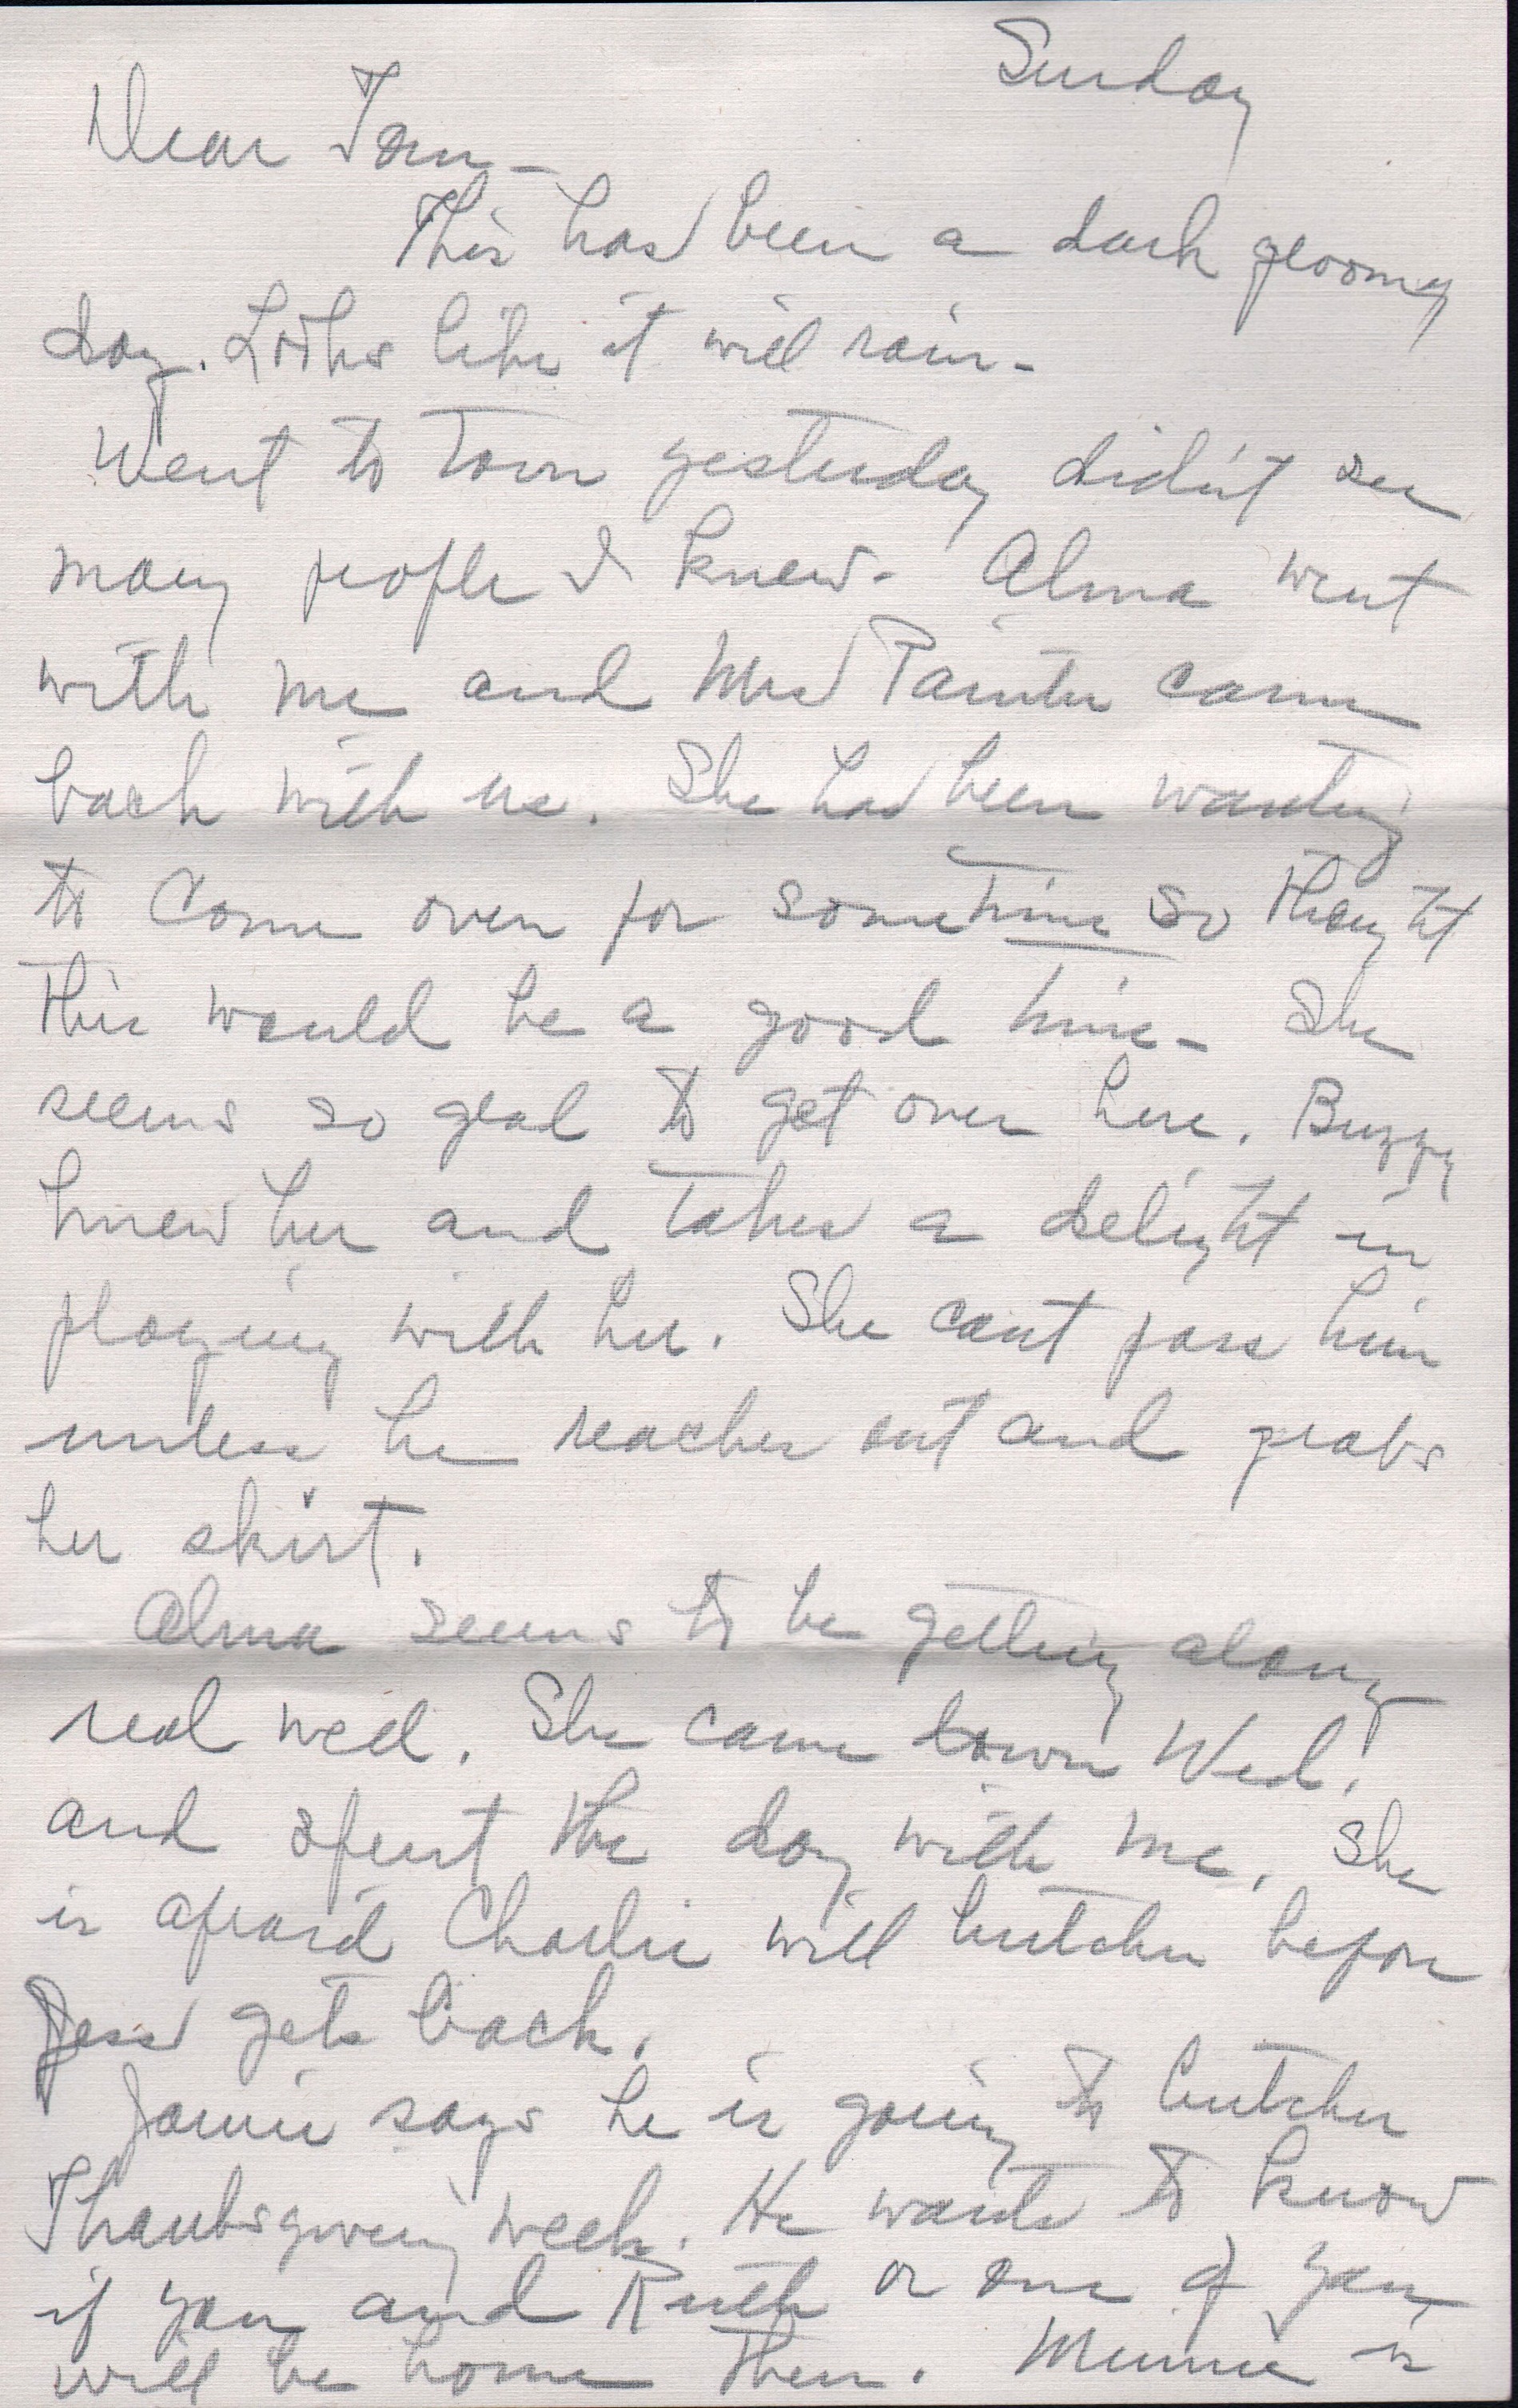 Sunday
Dear Tom -
This has been a dark gloomy
day. Looks like it will rain -
Went to town yesterday didn't see
many people I knew. Alma went
with me and Mrs Painter came
back with us. She has been wanting
to come over for sometime so thought
this would be a good time - She
seems so glad to get over here. Buzzy
knew her and takes a delight in
playing with her. She cant pass him
unless he reaches out and grabs
her skirt.
Alma seems to be getting along
real well. She came down Wed.
and spent the day with me. She
is afraid Charlie will butcher before
Jess gets back.
Jamie says he is going to butcher
Thanksgiving week. He wants to know
if you and Ruth or one of you
will be home then. Minnie is